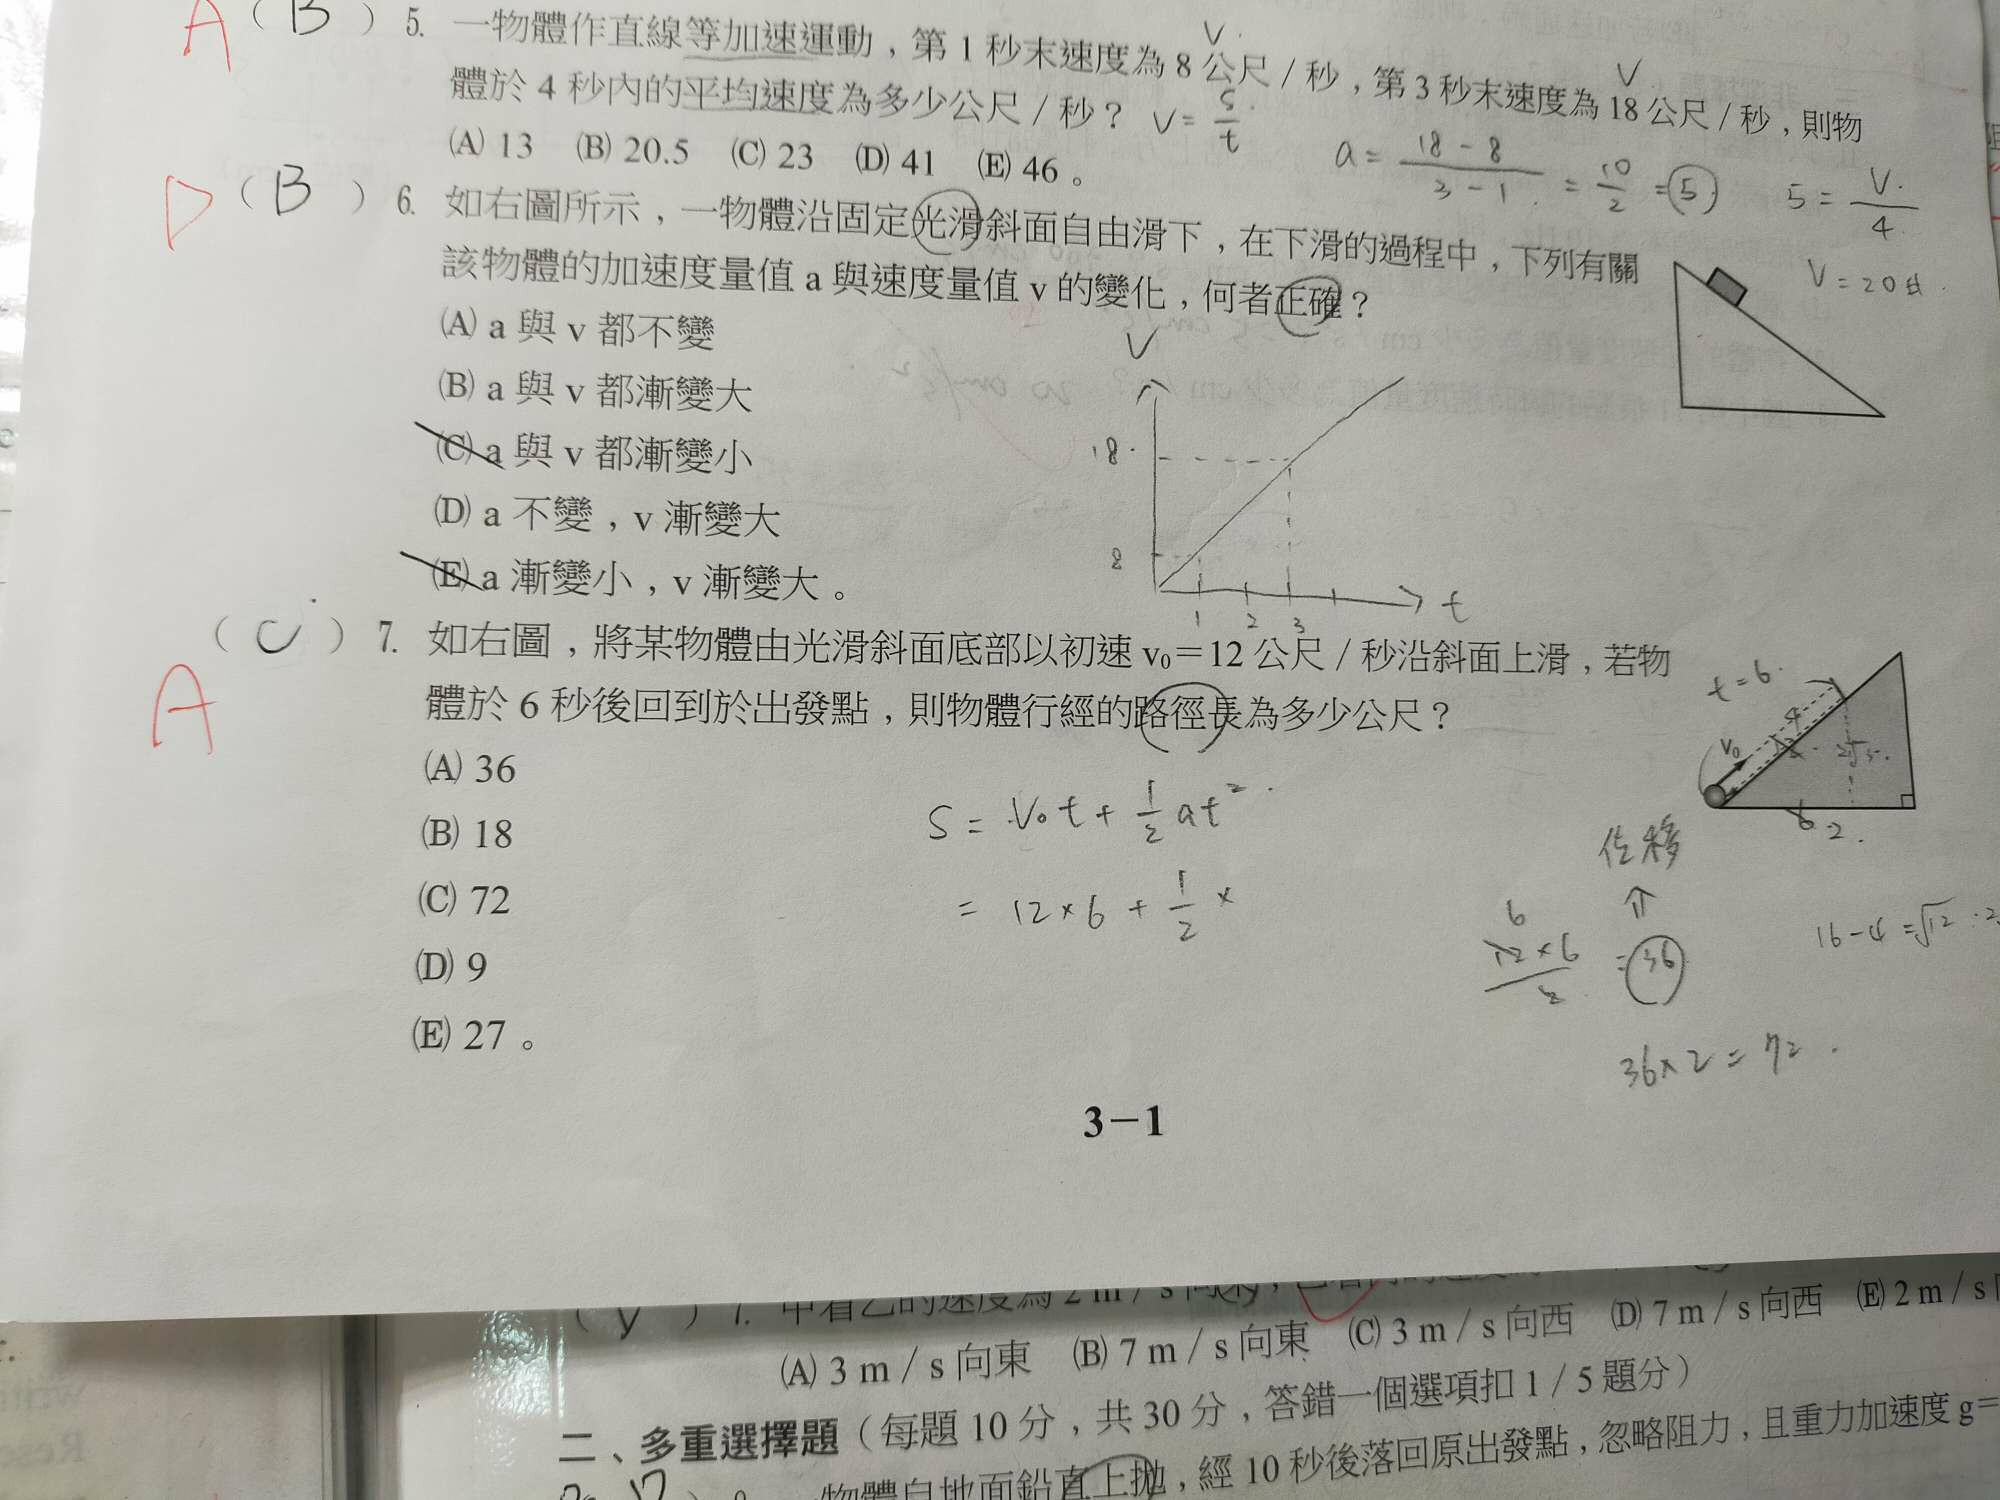 A ( B ) 5. 一物體作直線等加速運動，第 1 秒末速度為 8 公尺／秒，第 3 秒末速度為 18 公尺／秒，則物
體於 4 秒內的平均速度為多少公尺／秒？
V
V
V = S/t
(A) 13 (B) 20.5 (C) 23 (D) 41 (E) 46 。
a = (18 - 8)/(3 - 1) = 10/2 = 5
5 = V/4
V = 20
D ( B ) 6. 如右圖所示，一物體沿固定光滑斜面自由滑下，在下滑的過程中，下列有關
該物體的加速度量值 a 與速度量值 v 的變化，何者正確？
(A) a 與 v 都不變
(B) a 與 v 都漸變大
(C) a 與 v 都漸變小
(D) a 不變，v 漸變大
(E) a 漸變小，v 漸變大。
V
18
8
1 2 3
t
A ( C ) 7. 如右圖，將某物體由光滑斜面底部以初速 v₀＝12 公尺／秒沿斜面上滑，若物
體於 6 秒後回到於出發點，則物體行經的路徑長為多少公尺？
(A) 36
(B) 18
(C) 72
(D) 9
(E) 27 。
t = 6
V₀
4
6 2
S = V₀t + 1/2 at²
= 12×6 + 1/2 ×
位移
⇑
6
12×6/2 = 36
16 - 4 = √12
36×2 = 72
3－1
(A) 3 m／s 向東 (B) 7 m／s 向東 (C) 3 m／s 向西 (D) 7 m／s 向西 (E) 2 m／s
二、多重選擇題（每題 10 分，共 30 分，答錯一個選項扣 1／5 題分）
一物體自地面鉛直上拋，經 10 秒後落回原出發點，忽略阻力，且重力加速度 g＝